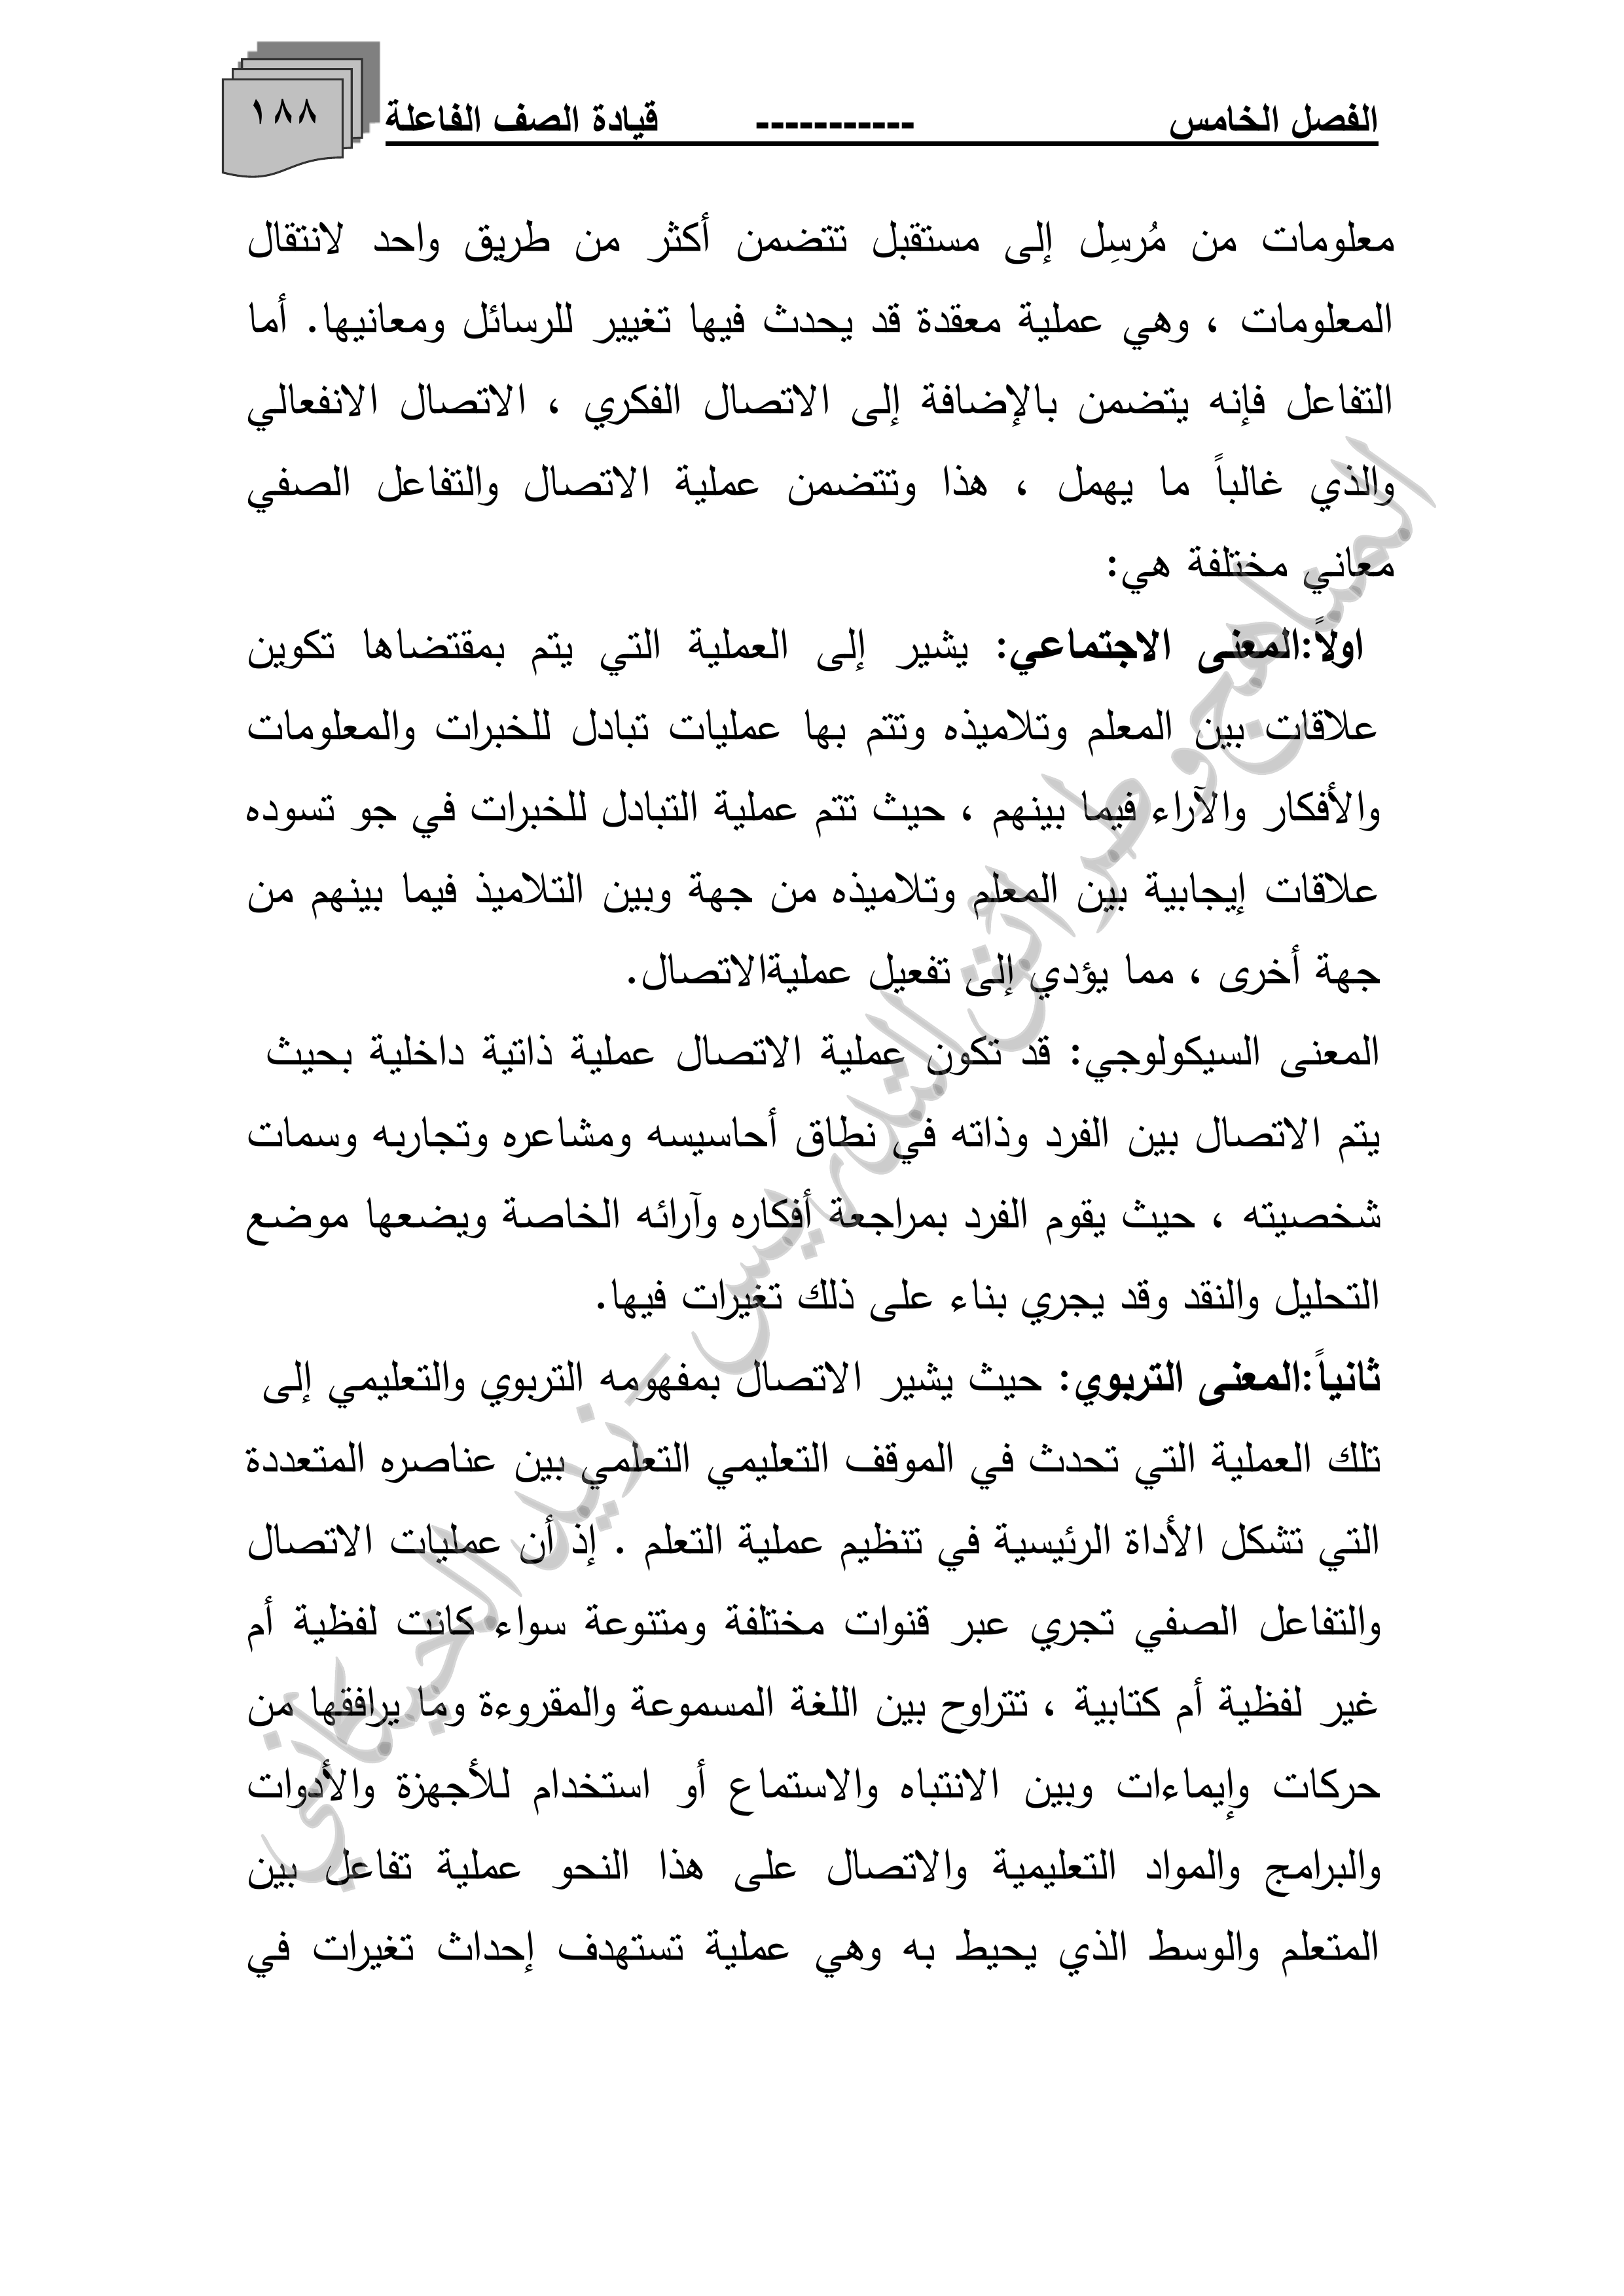 الفصل الخامس ----------- قيادة الصف الفاعلة
١٨٨
معلومات من مُرسِل إلى مستقبل تتضمن أكثر من طريق واحد لانتقال
المعلومات ، وهي عملية معقدة قد يحدث فيها تغيير للرسائل ومعانيها. أما
التفاعل فإنه يتضمن بالإضافة إلى الاتصال الفكري ، الاتصال الانفعالي
والذي غالباً ما يهمل ، هذا وتتضمن عملية الاتصال والتفاعل الصفي
معاني مختلفة هي:
اولاً:المعنى الاجتماعي: يشير إلى العملية التي يتم بمقتضاها تكوين
علاقات بين المعلم وتلاميذه وتتم بها عمليات تبادل للخبرات والمعلومات
والأفكار والآراء فيما بينهم ، حيث تتم عملية التبادل للخبرات في جو تسوده
علاقات إيجابية بين المعلم وتلاميذه من جهة وبين التلاميذ فيما بينهم من
جهة أخرى ، مما يؤدي إلى تفعيل عمليةالاتصال.
المعنى السيكولوجي: قد تكون عملية الاتصال عملية ذاتية داخلية بحيث
يتم الاتصال بين الفرد وذاته في نطاق أحاسيسه ومشاعره وتجاربه وسمات
شخصيته ، حيث يقوم الفرد بمراجعة أفكاره وآرائه الخاصة ويضعها موضع
التحليل والنقد وقد يجري بناء على ذلك تغيرات فيها.
ثانياً:المعنى التربوي: حيث يشير الاتصال بمفهومه التربوي والتعليمي إلى
تلك العملية التي تحدث في الموقف التعليمي التعلمي بين عناصره المتعددة
التي تشكل الأداة الرئيسية في تنظيم عملية التعلم . إذ أن عمليات الاتصال
والتفاعل الصفي تجري عبر قنوات مختلفة ومتنوعة سواء كانت لفظية أم
غير لفظية أم كتابية ، تتراوح بين اللغة المسموعة والمقروءة وما يرافقها من
حركات وإيماءات وبين الانتباه والاستماع أو استخدام للأجهزة والأدوات
والبرامج والمواد التعليمية والاتصال على هذا النحو عملية تفاعل بين
المتعلم والوسط الذي يحيط به وهي عملية تستهدف إحداث تغيرات في
المناهج وطرائق التدريس - زيد الخيكاني